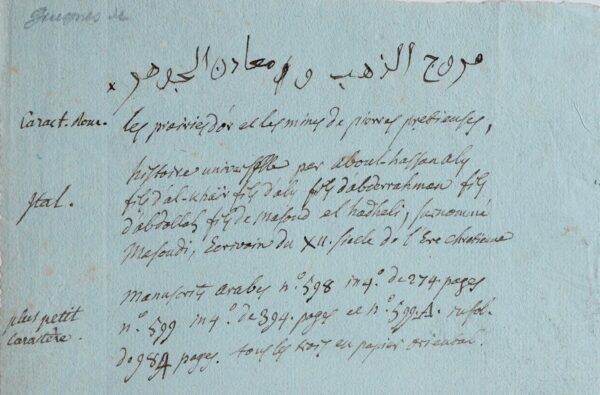 Guignes de
مروج الذهب و معادن الجوهر x
Caract. Rom. les prairies d'or et les mines de pierres pretieuses,
histoire universelle par aboul-hassan aly
Ital. fils d'al-khaïr fils d'aly fils d'abderrahman fils
d'abdallah fils de Masoud el hadheli, surnommé
Masoudi, Ecrivain du XII. siecle de l'Ere chretiene
manuscrits arabes n.º 598 in 4.º de 274 pages
plus petit n.º 599 in 4.º de 394. pages et n.º 599.A. in fol.
Caractère. de 984 pages. tous les trois en papier oriental.